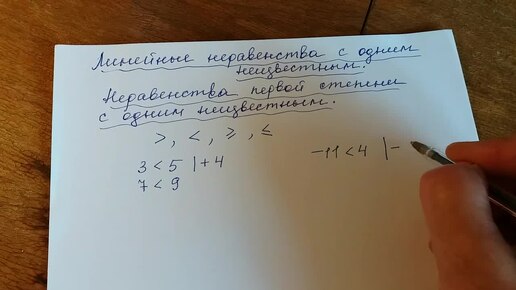 Линейные неравенства с одним
неизвестным.
Неравенства первой степени
с одним неизвестным.
>, <, ⩾, ≤
3 < 5 | + 4
7 < 9
-11 < 4 | -